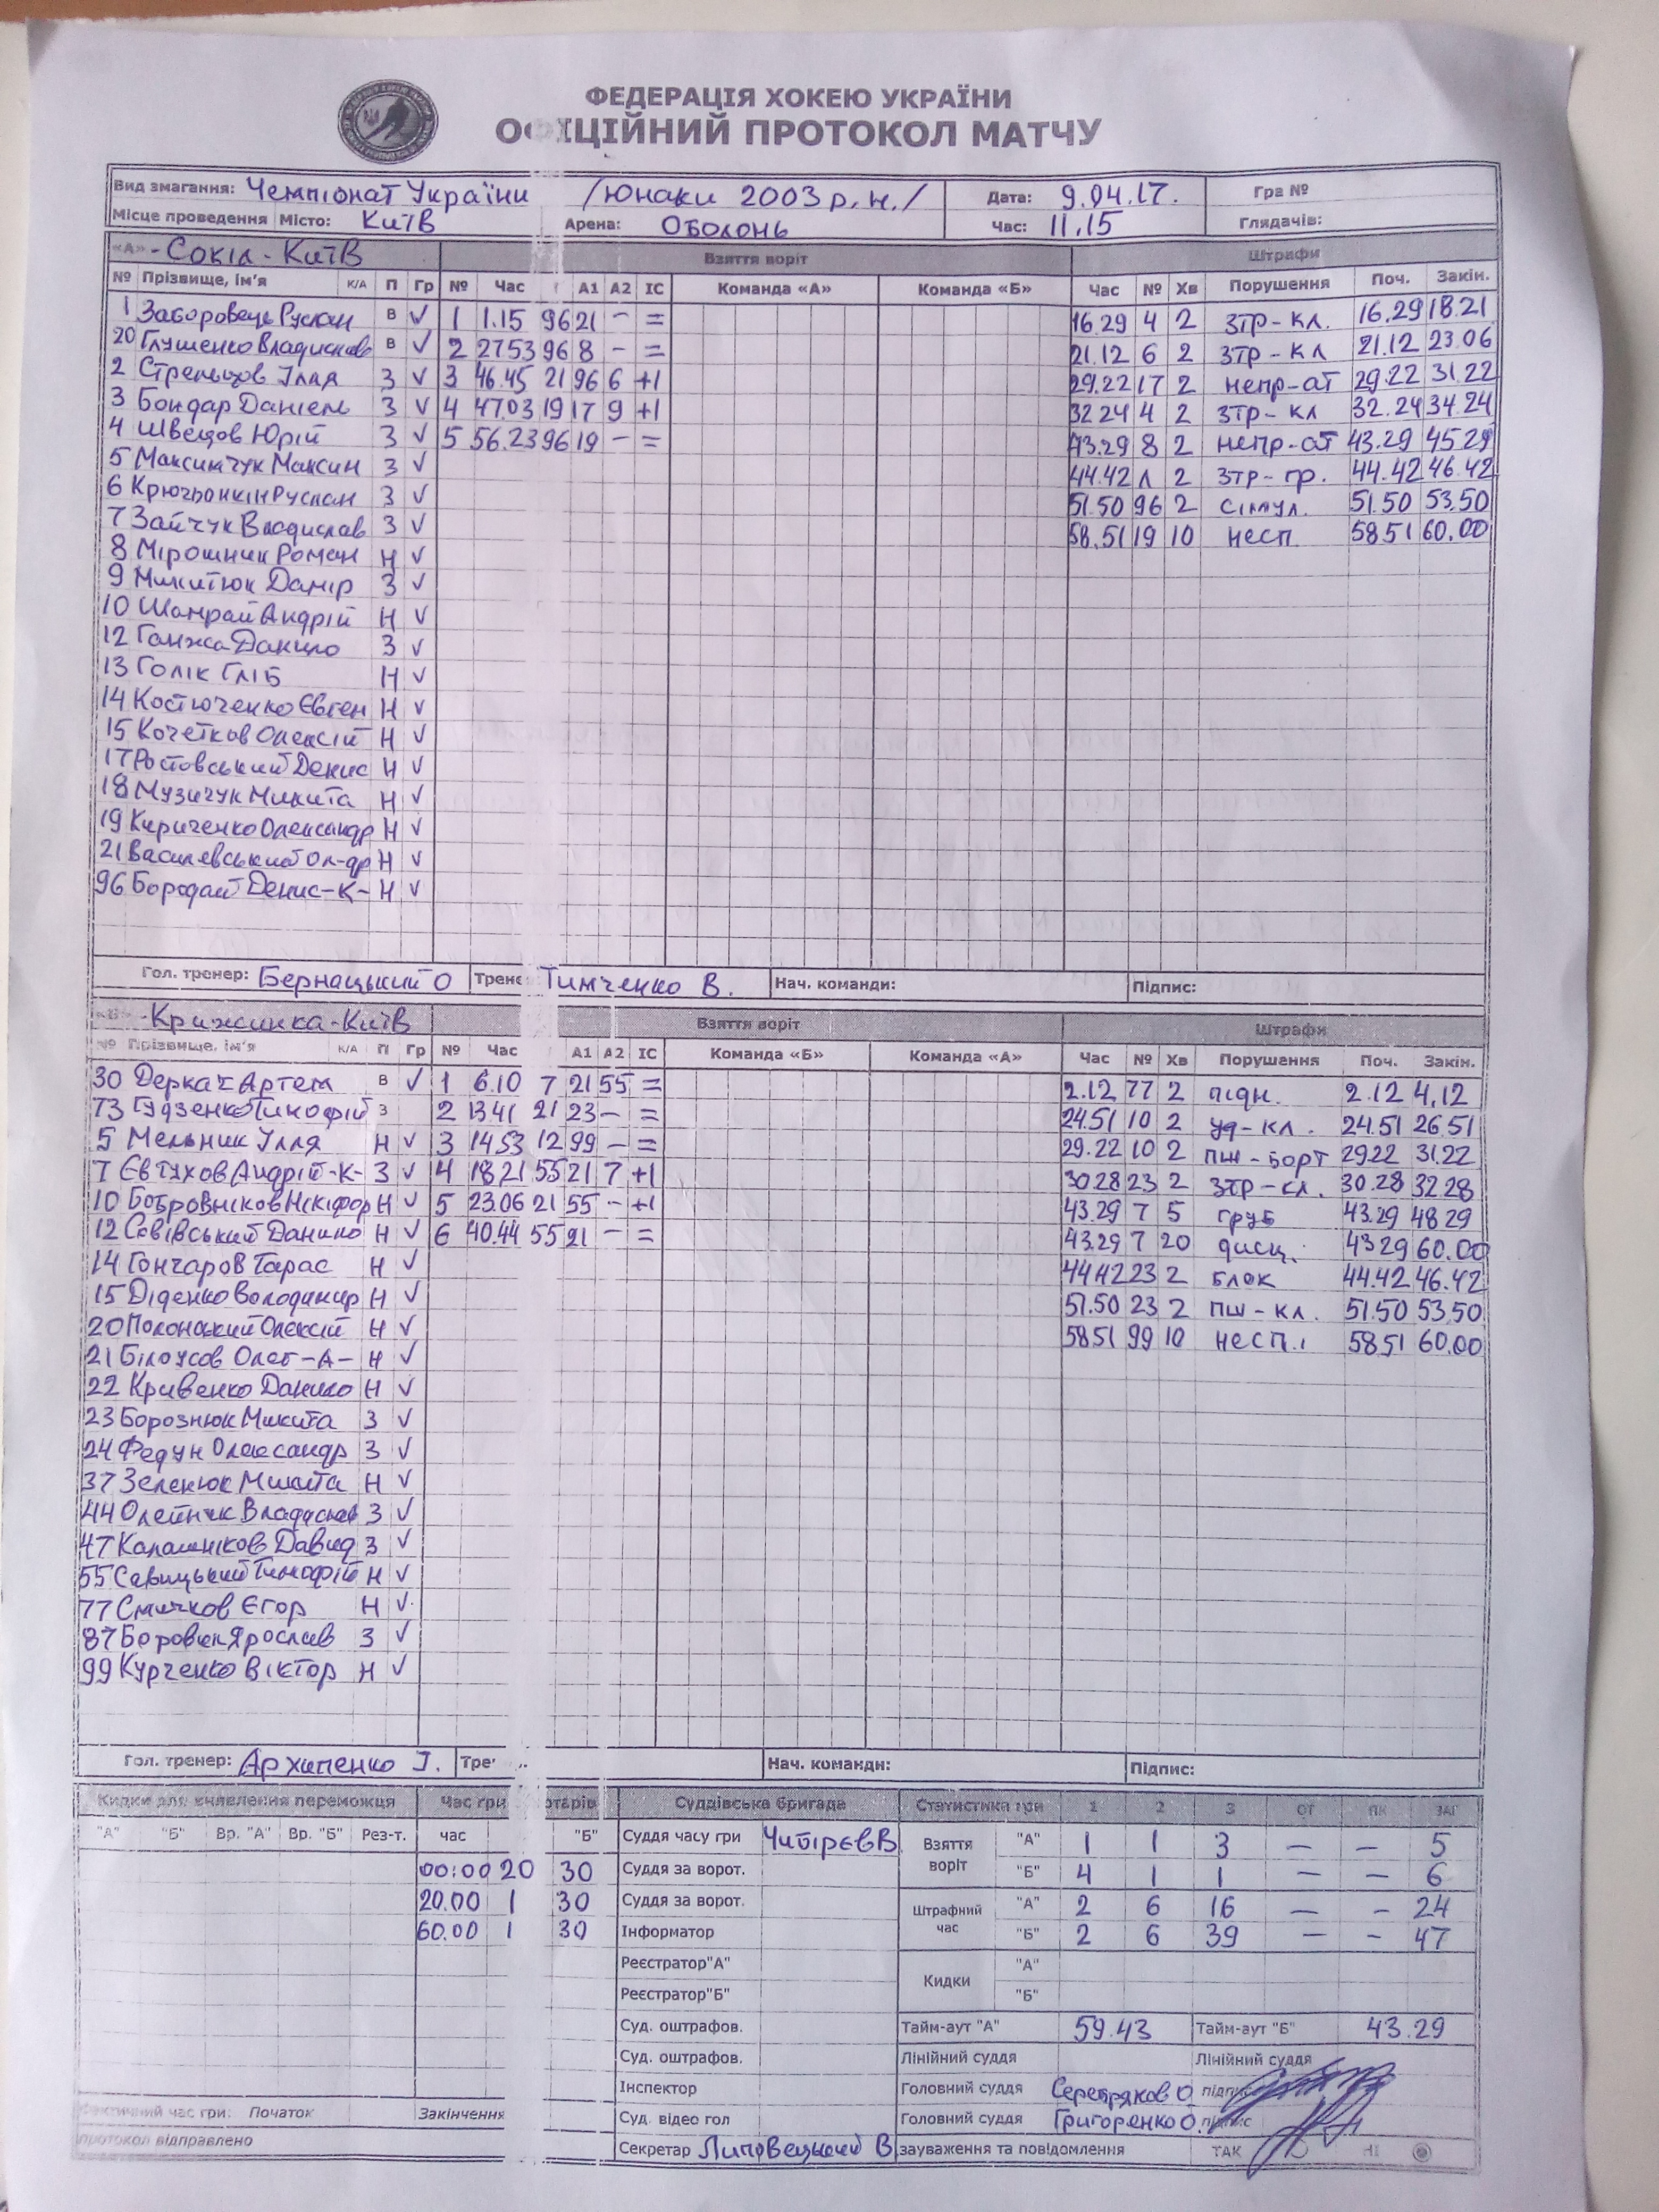 ФЕДЕРАЦІЯ ХОКЕЮ УКРАЇНИ
ОФІЦІЙНИЙ ПРОТОКОЛ МАТЧУ
Вид змагання: Чемпіонат України /юнаки 2003 р.н./ Дата: 9.04.17. Гра №
Місце проведення Місто: Київ Арена: Оболонь Час: 11.15 Глядачів:
«А» - Сокіл - Київ Взяття воріт Штрафи
№ Прізвище, ім'я К/А П Гр № Час А1 А2 ІС Команда «А» Команда «Б» Час № Хв Порушення Поч. Закін.
1 Заборовець Руслан В V 1 1.15 96 21 - = 16.29 4 2 зтр-кл. 16.29 18.21
20 Глушенко Владислав В V 2 27.53 96 8 - = 21.12 6 2 зтр-кл 21.12 23.06
2 Стрельцов Ілля З V 3 46.45 21 96 6 +1 29.22 17 2 непр-ат 29.22 31.22
3 Бондар Даніель З V 4 47.03 19 17 9 +1 32.24 4 2 зтр-кл 32.24 34.24
4 Швецов Юрій З V 5 56.23 96 19 - = 43.29 8 2 непр-ат 43.29 45.29
5 Максимчук Максим З V 44.42 Л 2 зтр-гр. 44.42 46.42
6 Крючьонкін Руслан З V 51.50 96 2 сімул. 51.50 53.50
7 Зайчук Владислав З V 58.51 19 10 несп 58.51 60.00
8 Мірошник Роман Н V
9 Микитюк Дамір З V
10 Шамрай Андрій Н V
12 Ганжа Данило З V
13 Голік Гліб Н V
14 Костюченко Євген Н V
15 Кочетков Олексій Н V
17 Ростовський Денис Н V
18 Музичук Микита Н V
19 Кириченко Олександр Н V
21 Василевський Ол-др Н V
96 Бородай Денис-К- Н V
Гол. тренер: Бернацький О Трене Тимченко В. Нач. команди: Підпис:
«Б» - Крижинка-Київ Взяття воріт Штрафи
№ Прізвище, ім'я К/А П Гр № Час А1 А2 ІС Команда «Б» Команда «А» Час № Хв Порушення Поч. Закін.
30 Деркач Артем В V 1 6.10 7 21 55 = 2.12 77 2 підн. 2.12 4.12
73 Гудзенко Тимофій З 2 13.41 21 23 - = 24.51 10 2 уд-кл. 24.51 26.51
5 Мельник Ілля Н V 3 14.53 12 99 - = 29.22 10 2 пш-борт 29.22 31.22
7 Євтухов Андрій-К- З V 4 18.21 55 21 7 +1 30.28 23 2 зтр-кл. 30.28 32.28
10 Бобровніков Нікіфор Н V 5 23.06 21 55 - +1 43.29 7 5 груб 43.29 48.29
12 Савівський Данило Н V 6 40.44 55 21 - = 43.29 7 20 дисц. 43.29 60.00
14 Гончаров Тарас Н V 44.42 23 2 блок 44.42 46.42
15 Діденко Володимир Н V 51.50 23 2 пш-кл. 51.50 53.50
20 Полонський Олексій Н V 58.51 99 10 несп. 58.51 60.00
21 Білоусов Олег-А- Н V
22 Кривенко Данило Н V
23 Борознюк Микита З V
24 Федун Олександр З V
37 Зеленюк Микита Н V
44 Олейник Владислав З V
47 Калашніков Давид З V
55 Савицький Тимофій Н V
77 Смичков Єгор Н V
87 Боровик Ярослав З V
99 Курченко Віктор Н V
Гол. тренер: Архипенко І. Тре Нач. команди: Підпис:
Кидки для виявлення переможця Час гри отарів Суддівська бригада Статистика гри 1 2 3 ОТ ПК ЗАГ
"А" "Б" Вр. "А" Вр. "Б" Рез-т. час "Б" Суддя часу гри Чибірєв В Взяття воріт "А" 1 1 3 - - 5
00:00 20 30 Суддя за ворот. "Б" 4 1 1 - - 6
20.00 1 30 Суддя за ворот. Штрафний час "А" 2 6 16 - - 24
60.00 1 30 Інформатор "Б" 2 6 39 - - 47
Реєстратор"А" Кидки "А"
Реєстратор"Б" "Б"
Суд. оштрафов. Тайм-аут "А" 59.43 Тайм-аут "Б" 43.29
Суд. оштрафов. Лінійний суддя Лінійний суддя
Інспектор Головний суддя Серебряков О. підпис
Фактичний час гри: Початок Закінчення Суд. відео гол Головний суддя Григоренко О. підпис
протокол відправлено Секретар Липовецький В. зауваження та повідомлення ТАК НІ